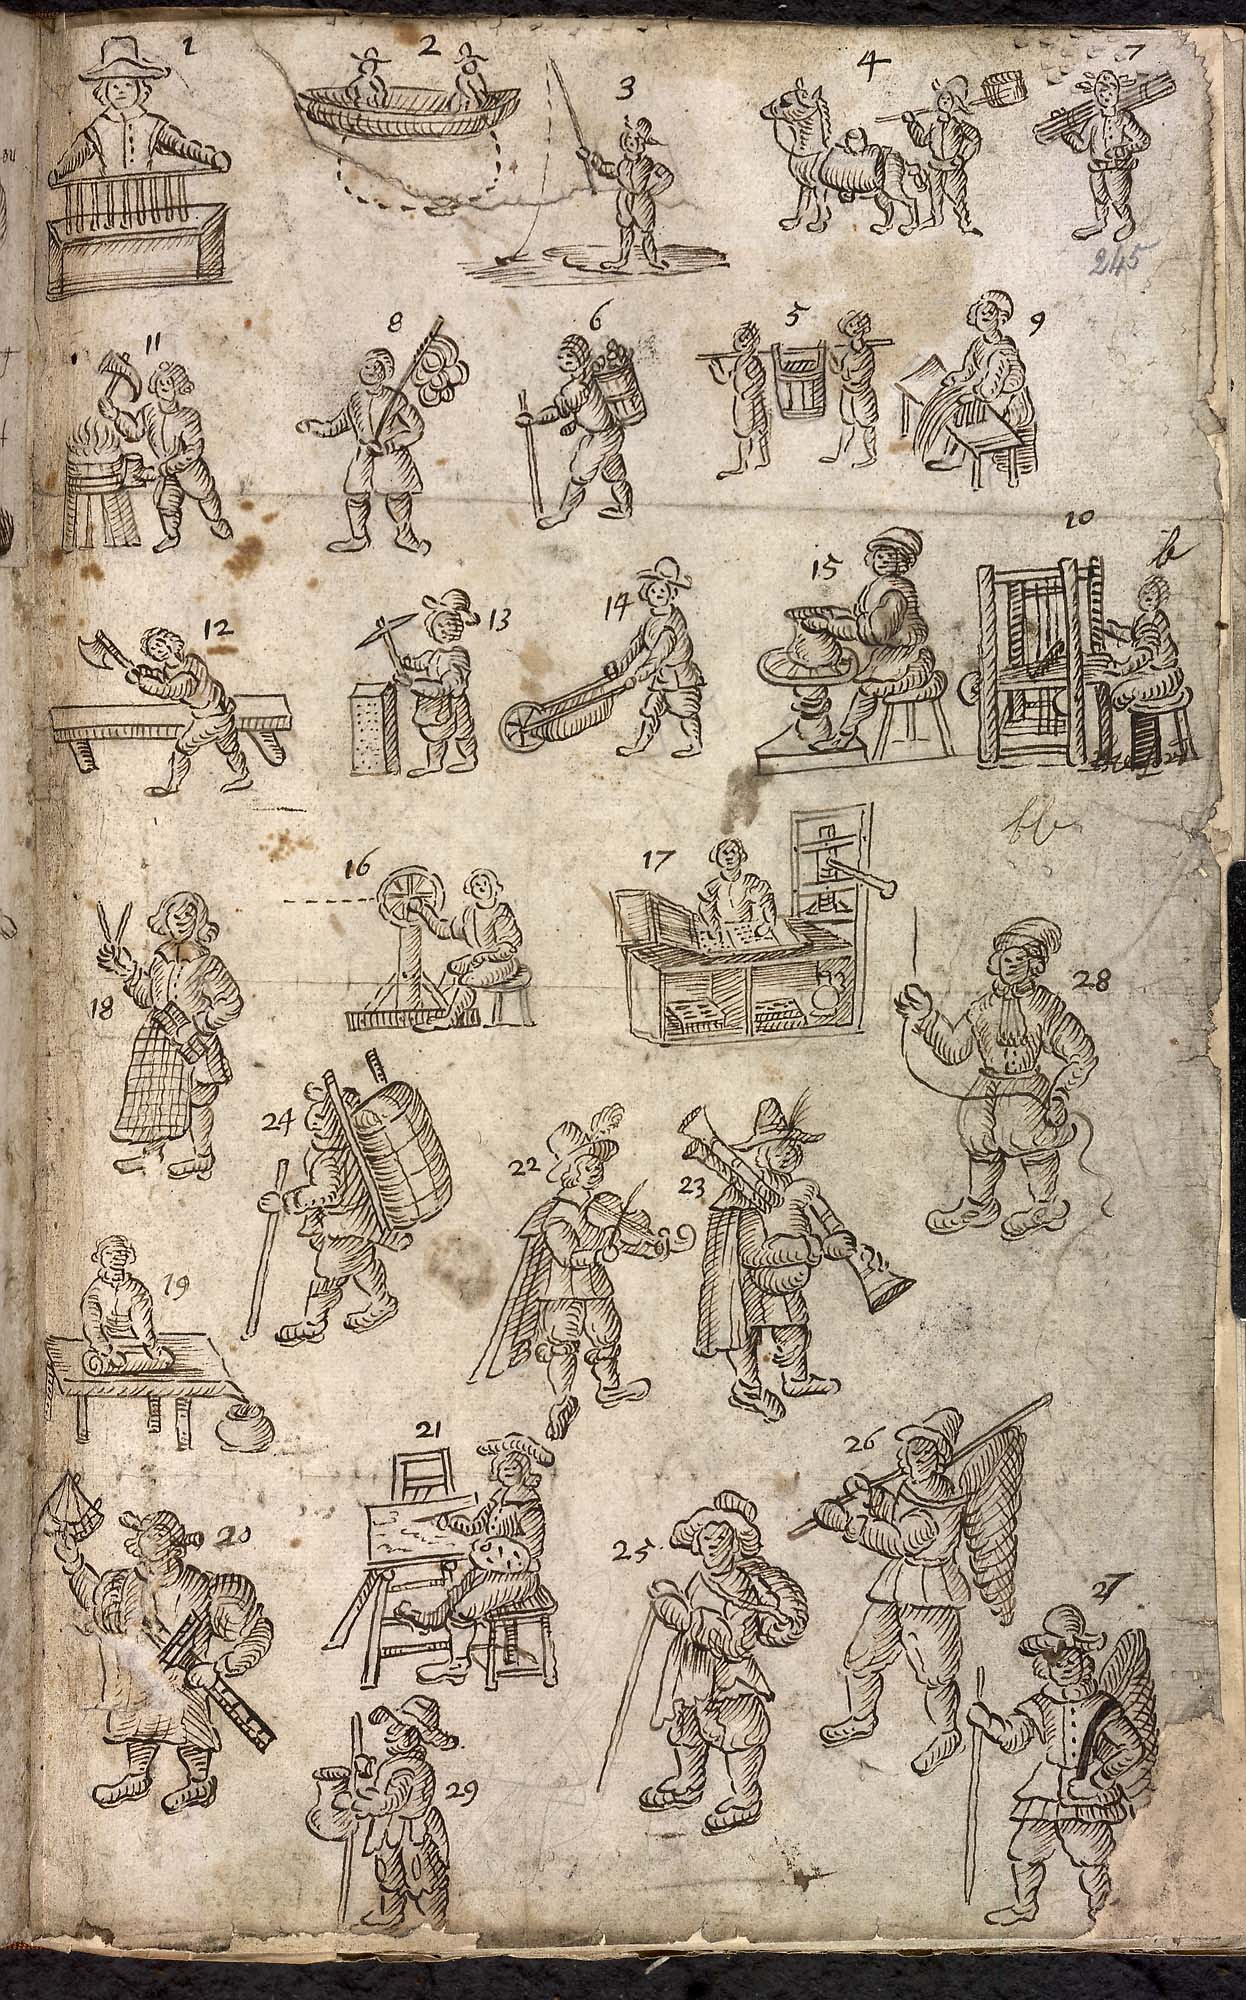 1
2
3
4
7
245
11
8
6
5
9
12
13
14
15
10
b
16
17
bb
18
28
24
22
23
19
21
26
20
25
27
29